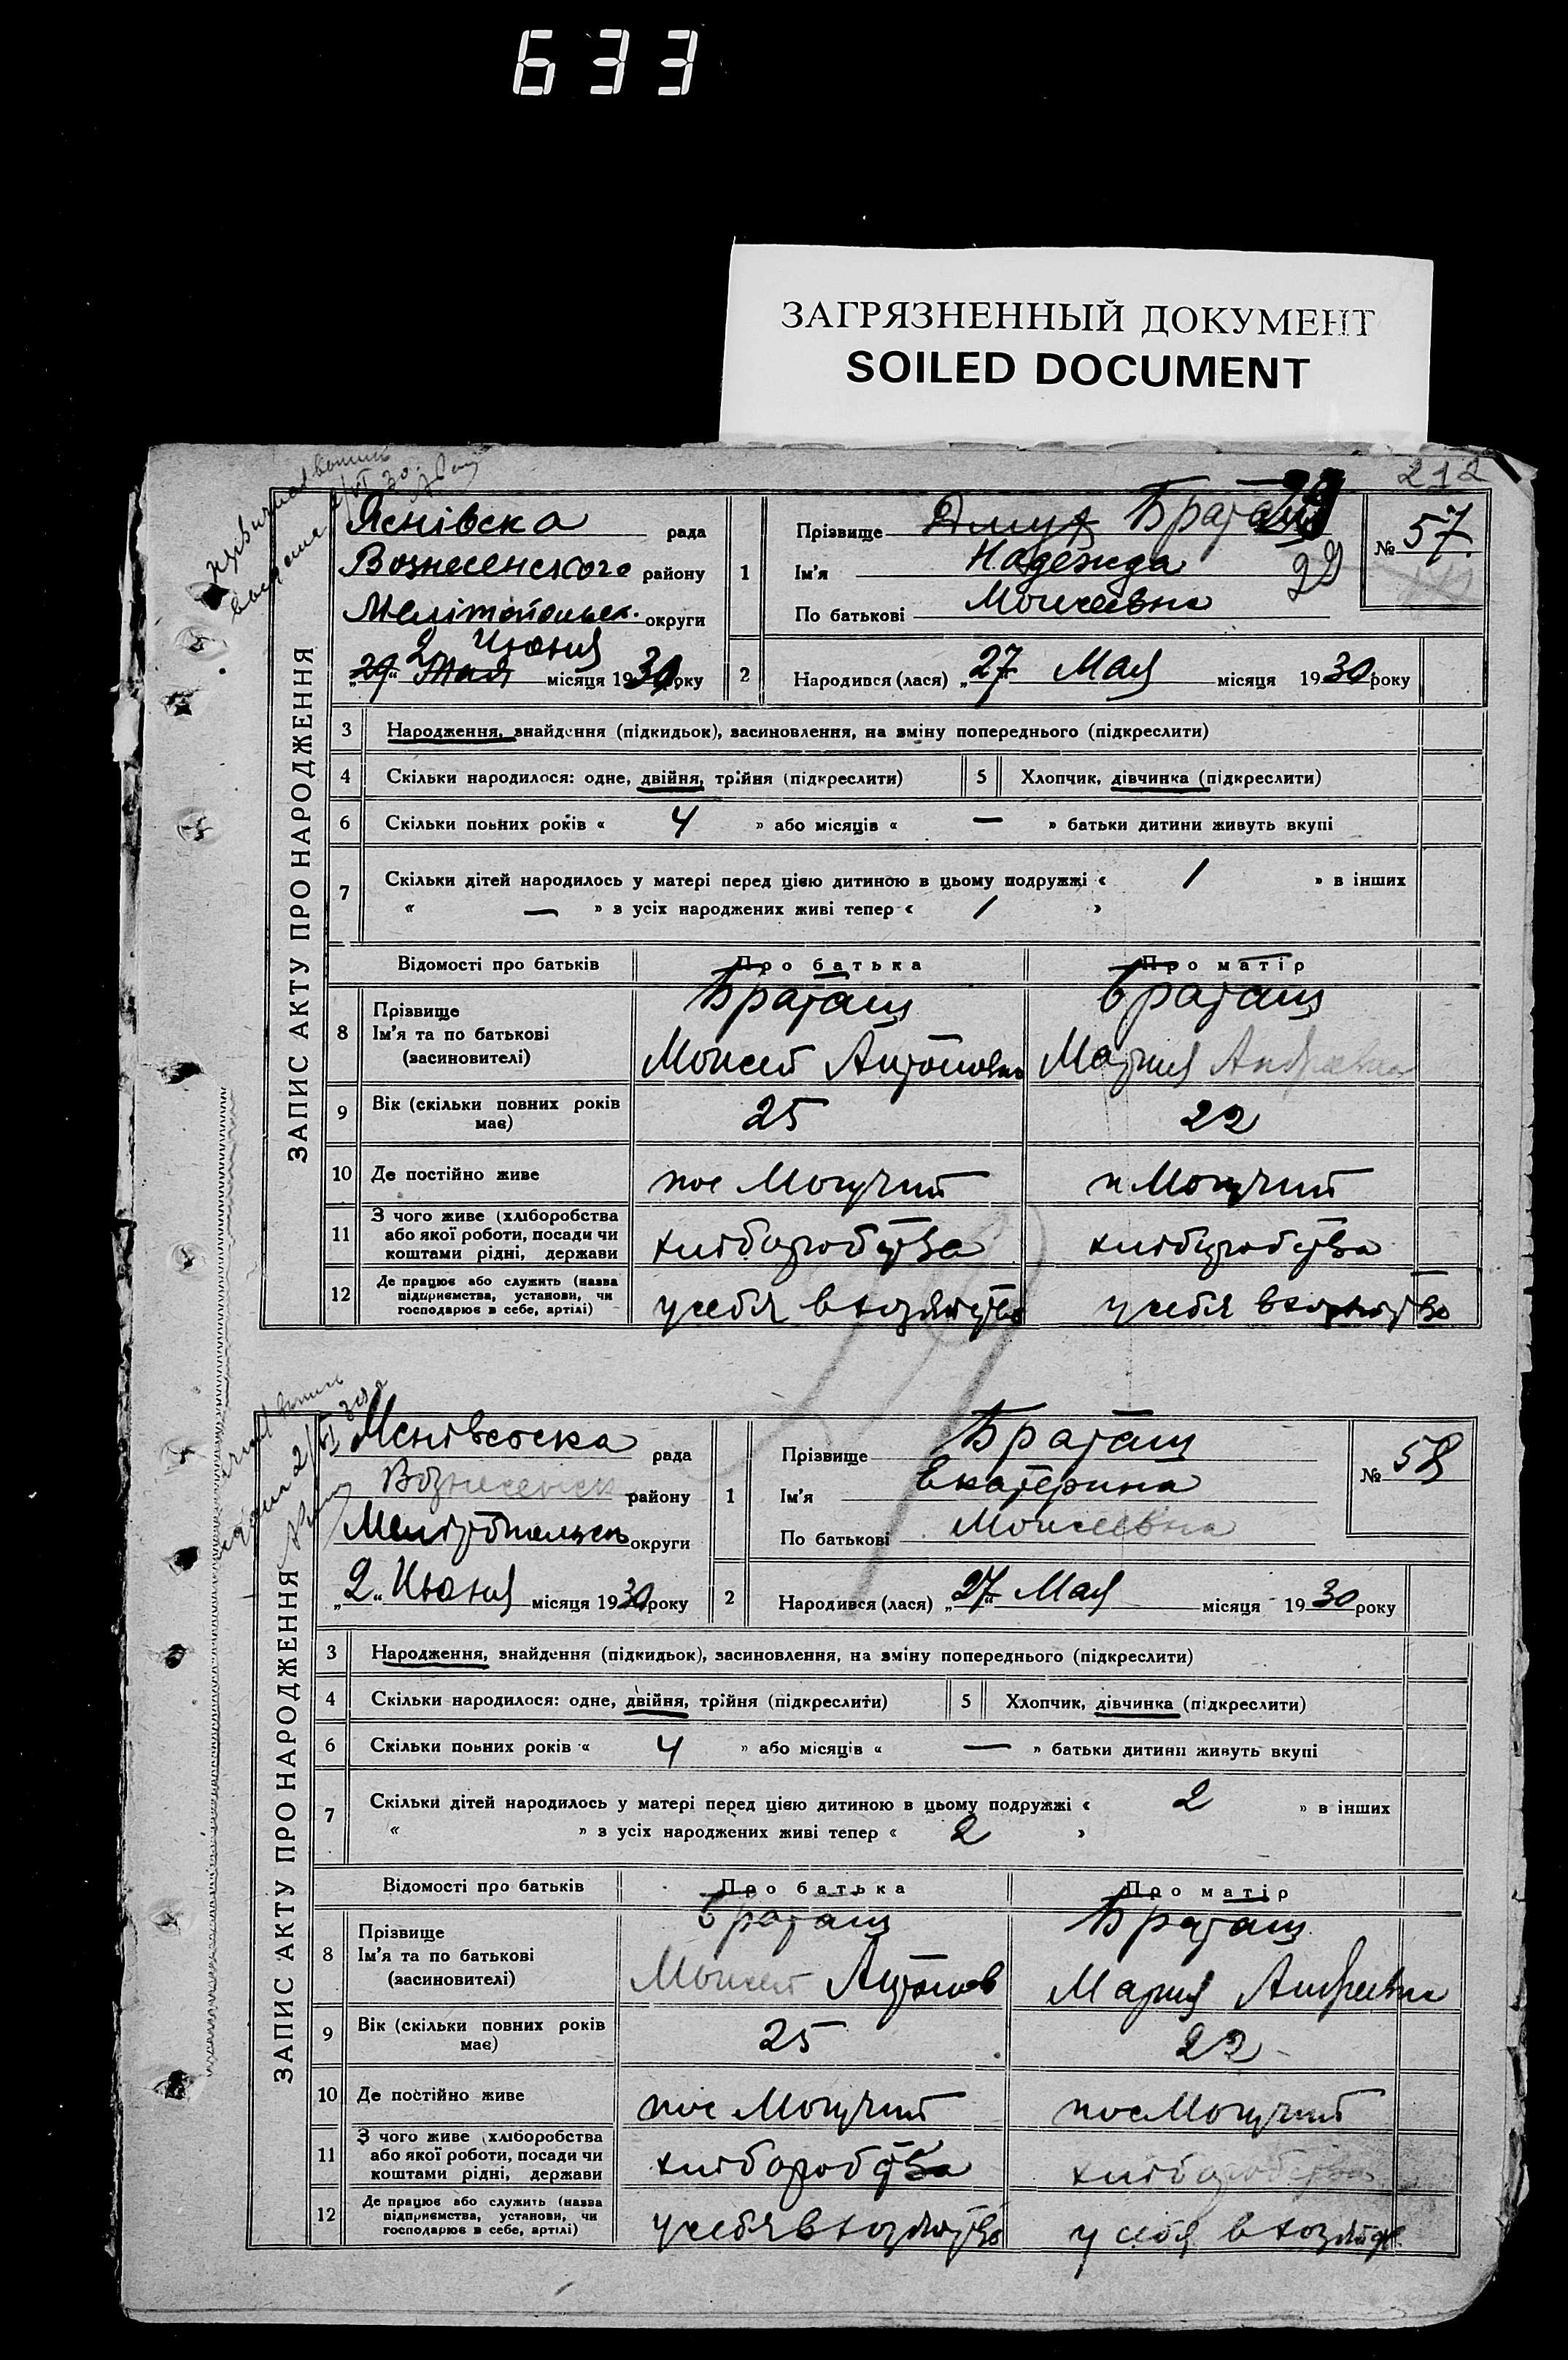 633
ЗАГРЯЗНЕННЫЙ ДОКУМЕНТ
SOILED DOCUMENT
212
ЗАПИС АКТУ ПРО НАРОДЖЕННЯ
Яснівска рада
Вознесенского району
Мелітопольск. округи
29 Мая 2 Июня місяця 1930 року
1 Прізвище Братащ
Ім'я Надежда
22
По батькові Моисеевна
№ 57
2 Народився (лася) „27“ Мая місяця 1930 року
3 Народження, знайдення (підкидьок), засиновлення, на зміну попереднього (підкреслити)
4 Скільки народилося: одне, двійня, трійня (підкреслити) 5 Хлопчик, дівчинка (підкреслити)
6 Скільки повних років « 4 » або місяців « — » батьки дитини живуть вкупі
7 Скільки дітей народилось у матері перед цією дитиною в цьому подружжі « 1 » в інших
« — » з усіх народжених живі тепер « 1 »
Відомості про батьків Про батька Про матір
8 Прізвище Братащ Братащ
Ім'я та по батькові
(засиновителі) Моисей Антонович Мария Андреевна
9 Вік (скільки повних років має) 25 22
10 Де постійно живе пос Могучий п Могучий
11 З чого живе (хліборобства
або якої роботи, посади чи
коштами рідні, держави хліборобства хліборобства
12 Де працює або служить (назва
підприємства, установи, чи
господарює в себе, артілі) у себя в хозяйство у себя в хозяйство
ЗАПИС АКТУ ПРО НАРОДЖЕННЯ
рада
Вознесенск району
округи
„2“ Июня місяця 1930 року
1 Прізвище Братащ
Ім'я Екатерина
По батькові Моисеевна
№ 58
2 Народився (лася) „27“ Мая місяця 1930 року
3 Народження, знайдення (підкидьок), засиновлення, на зміну попереднього (підкреслити)
4 Скільки народилося: одне, двійня, трійня (підкреслити) 5 Хлопчик, дівчинка (підкреслити)
6 Скільки повних років « 4 » або місяців « — » батьки дитини живуть вкупі
7 Скільки дітей народилось у матері перед цією дитиною в цьому подружжі « 2 » в інших
« » з усіх народжених живі тепер « 2 »
Відомості про батьків Про батька Про матір
8 Прізвище Братащ Братащ
Ім'я та по батькові
(засиновителі) Моисей Антонов Мария Андреевна
9 Вік (скільки повних років має) 25 22
10 Де постійно живе пос Могучий пос Могучий
11 З чого живе (хліборобства
або якої роботи, посади чи
коштами рідні, держави хліборобства хліборобства
12 Де працює або служить (назва
підприємства, установи, чи
господарює в себе, артілі) у себя в хозяйство у себя в хозяйст